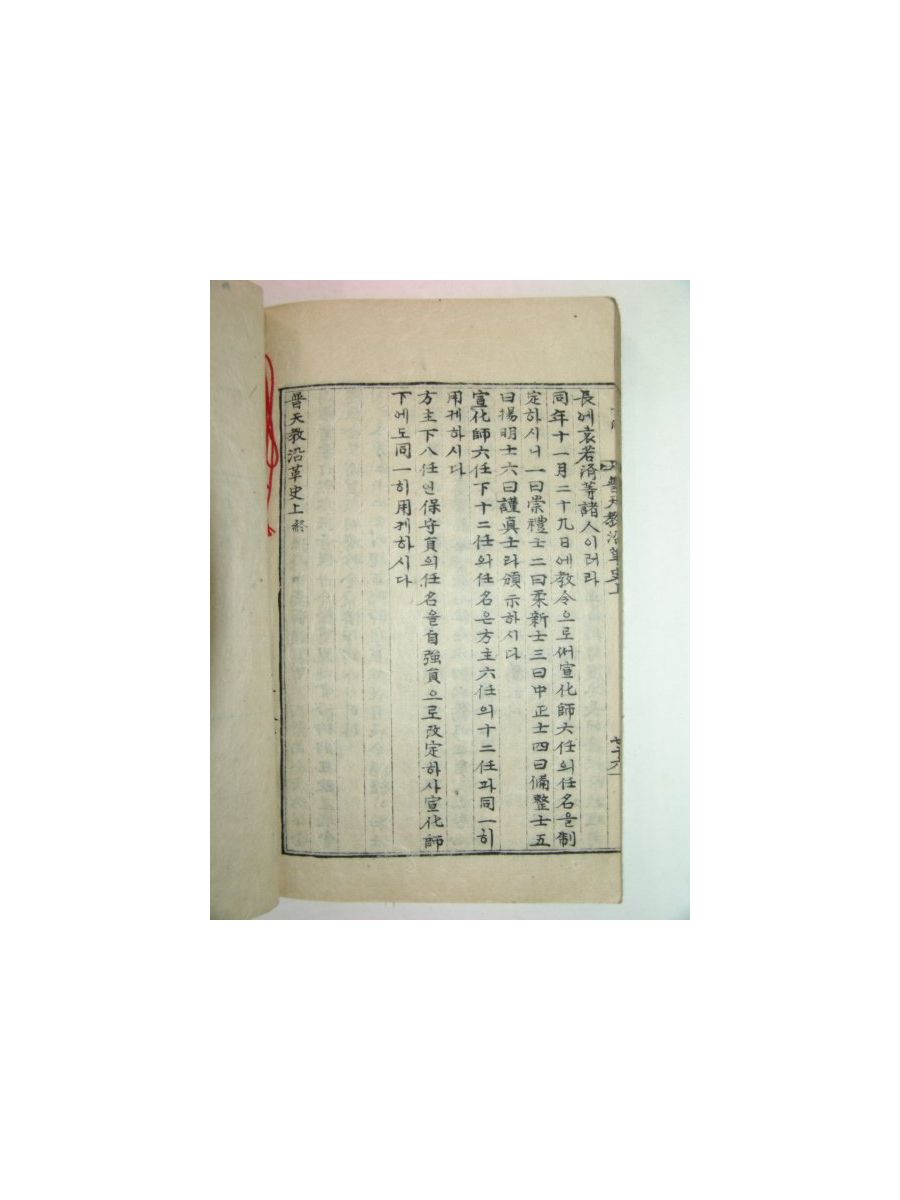 普天教沿革史上
七十六
長에 哀若済等諸人이러라
同年十一月二十九日에 教令으로써 宣化師六任의 任名을 制
定하시니 一曰崇禮士 二曰柔新士 三曰中正士 四曰備整士 五
曰揚明士 六曰謹真士라 頒示하시다
宣化師六任下十二任와 任名은 方主六任의 十二任과 同一히
用케하시다
方主下八任인 保守員의 任名을 自強員으로 改定하사 宣化師
下에도 同一히 用케하시다
普天教沿革史上 終